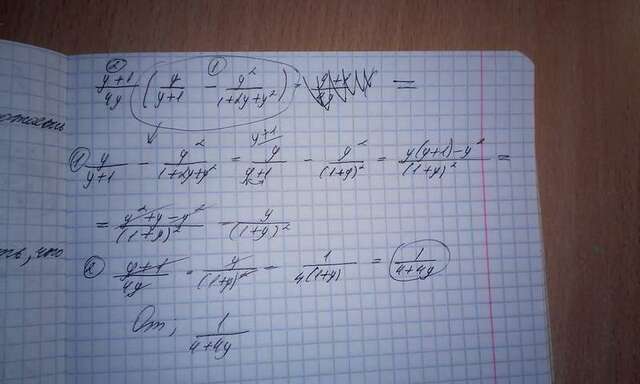 ② ①
(y+1)/(4y) (y/(y+1) - y²/(1+2y+y²)) · =
① y/(y+1) - y²/(1+2y+y²) = y/(y+1) - y²/(1+y)² = (y(y+1)-y²)/(1+y)² =
= (y²+y-y²)/(1+y)² y/(1+y)²
② (y+1)/(4y) · y/(1+y)² = 1/(4(1+y)) = 1/(4+4y)
От; 1/(4+4y)